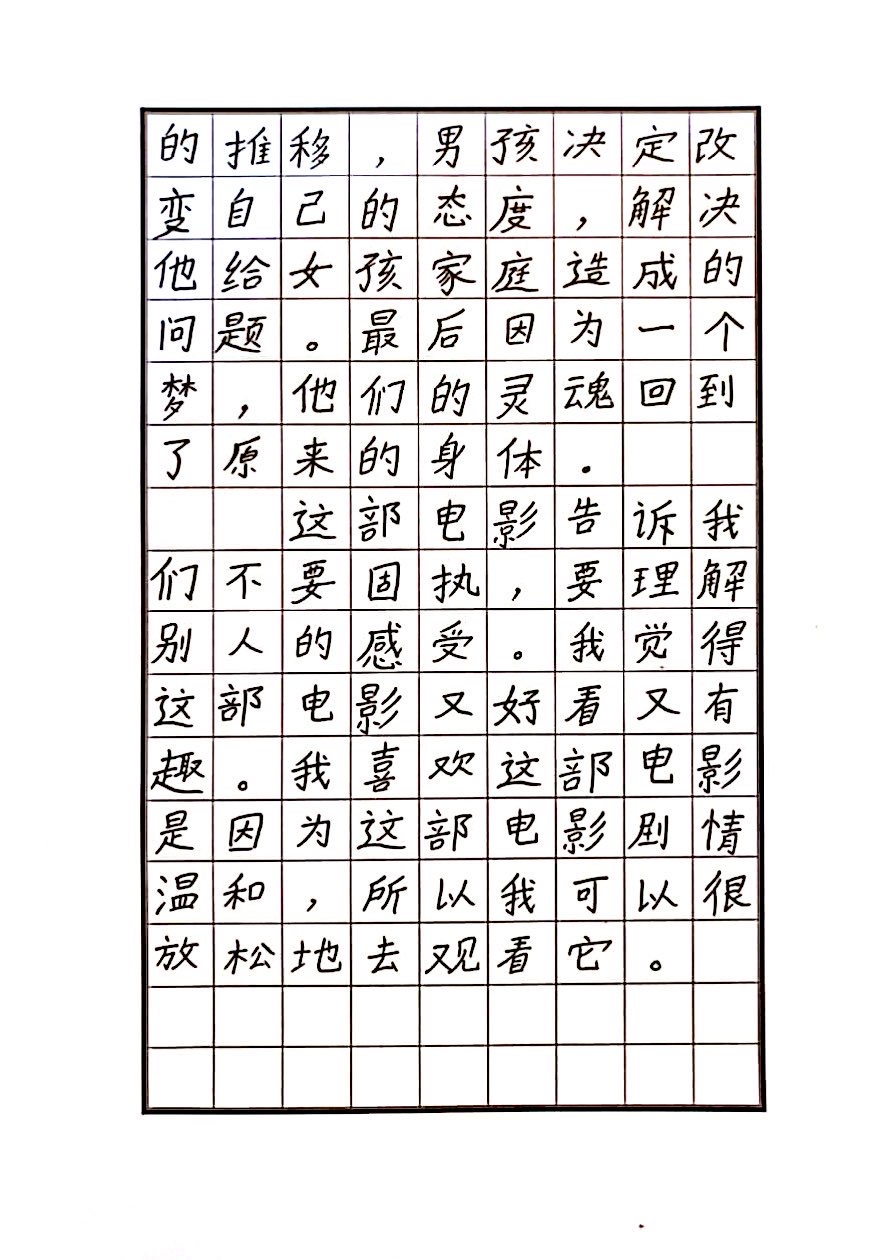 的推移，男孩决定改
变自己的态度，解决
他给女孩家庭造成的
问题。最后因为一个
梦，他们的灵魂回到
了原来的身体.
这部电影告诉我
们不要固执，要理解
别人的感受。我觉得
这部电影又好看又有
趣。我喜欢这部电影
是因为这部电影剧情
温和，所以我可以很
放松地去观看它。